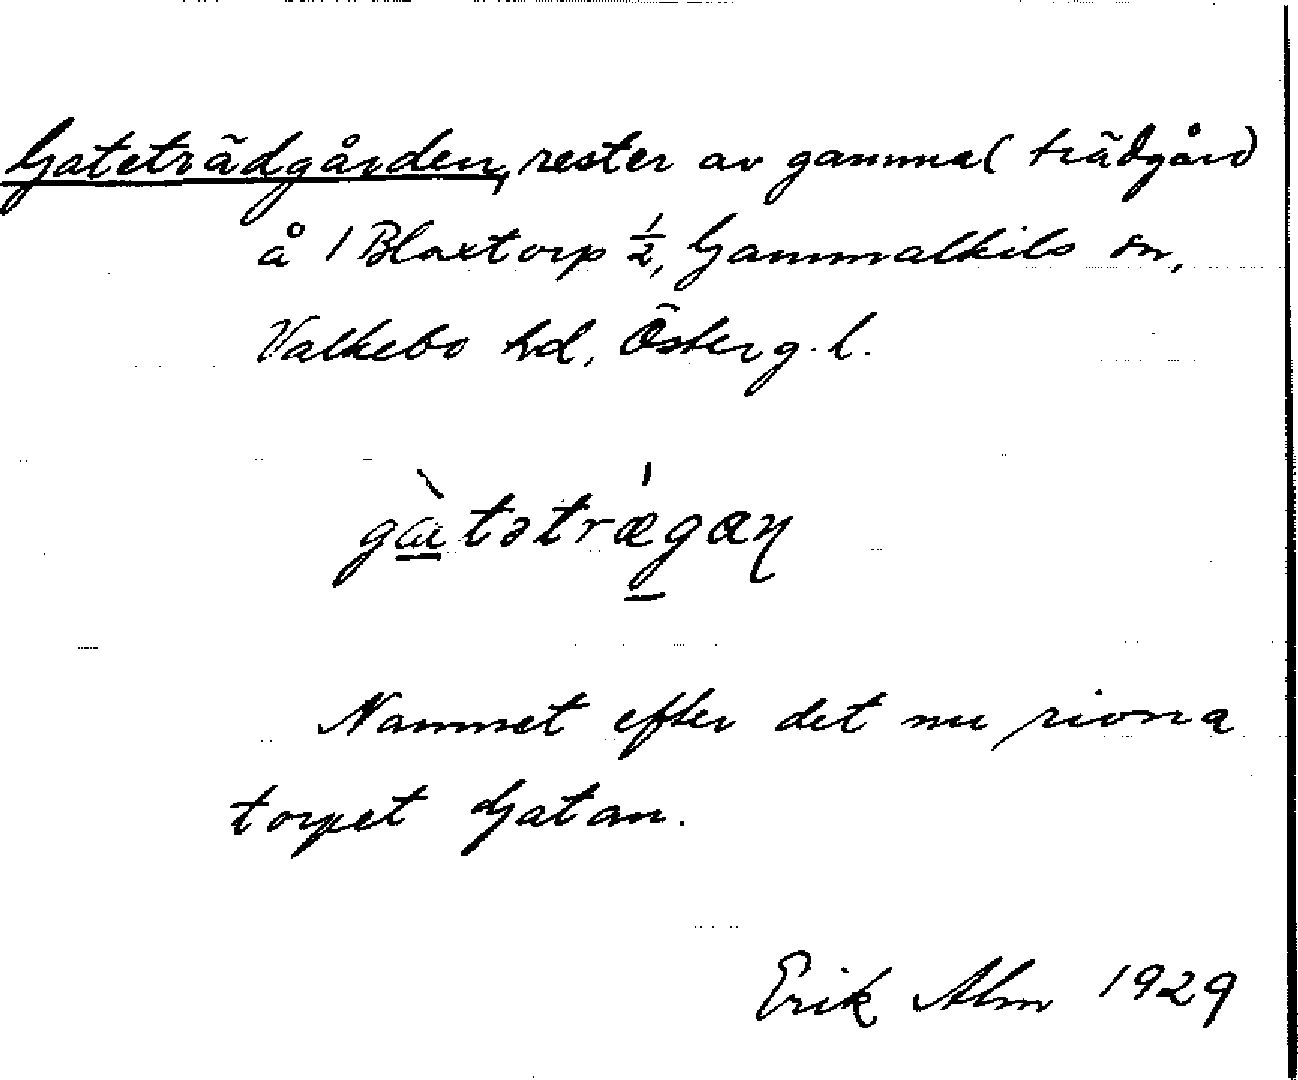 Gateträdgården, rester av gammal trädgård
å 1 Blaxtorp 1/2, Gammalkils sn,
Valkebo hd, Österg. l.
gàtətrǽgæɳ
Namnet efter det nu rivna
torpet Gatan.
Erik Alm 1929